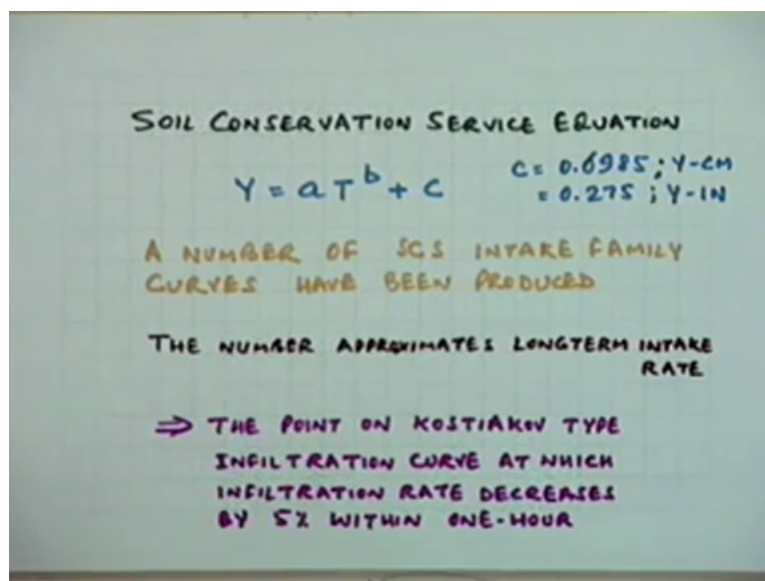 SOIL CONSERVATION SERVICE EQUATION
Y = aT^b + C
C = 0.6985 ; Y-CM
= 0.275 ; Y-IN
A NUMBER OF SCS INTAKE FAMILY
CURVES HAVE BEEN PRODUCED
THE NUMBER APPROXIMATES LONGTERM INTAKE
RATE
⇒ THE POINT ON KOSTIAKOV TYPE
INFILTRATION CURVE AT WHICH
INFILTRATION RATE DECREASES
BY 5% WITHIN ONE-HOUR